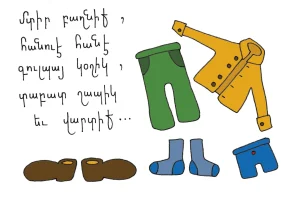 մտիր բաղնիք,
հանուէ հանէ
գուլպայ կօշիկ,
տաբատ շապիկ
եւ վարտիք...